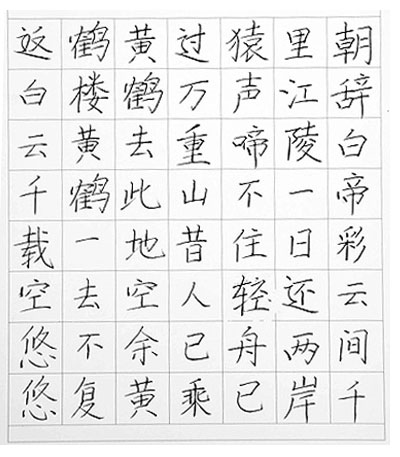 朝辞白帝彩云间千
里江陵一日还两岸
猿声啼不住轻舟已
过万重山昔人已乘
黄鹤去此地空余黄
鹤楼黄鹤一去不复
返白云千载空悠悠